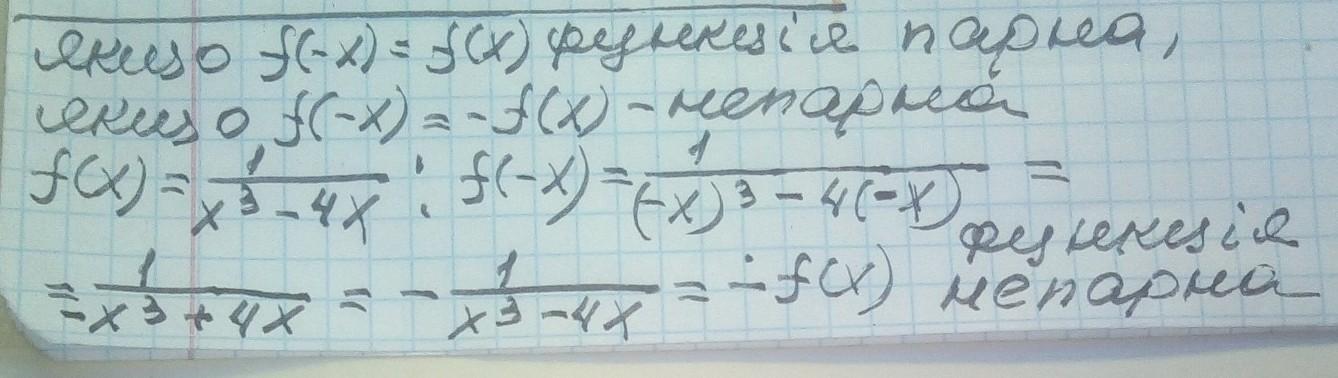 якщо f(-x) = f(x) функція парна,
якщо f(-x) = -f(x) - непарна
f(x) = 1/(x³ - 4x) ; f(-x) = 1/((-x)³ - 4(-x)) =
= 1/(-x³ + 4x) = - 1/(x³ - 4x) = -f(x) функція непарна